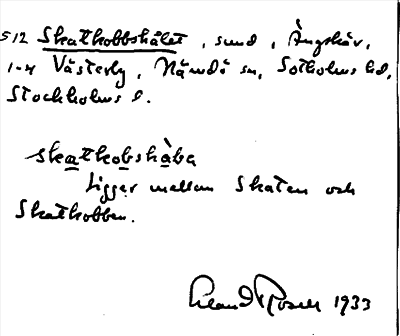 512 Skatkobbshålet, sund, Ängskär,
1-4 Västerby, Nämdö sn, Sotholms hd,
Stockholms l.
skatkobshåba
Ligger mellan Skaten och
Skatkobben.
1933